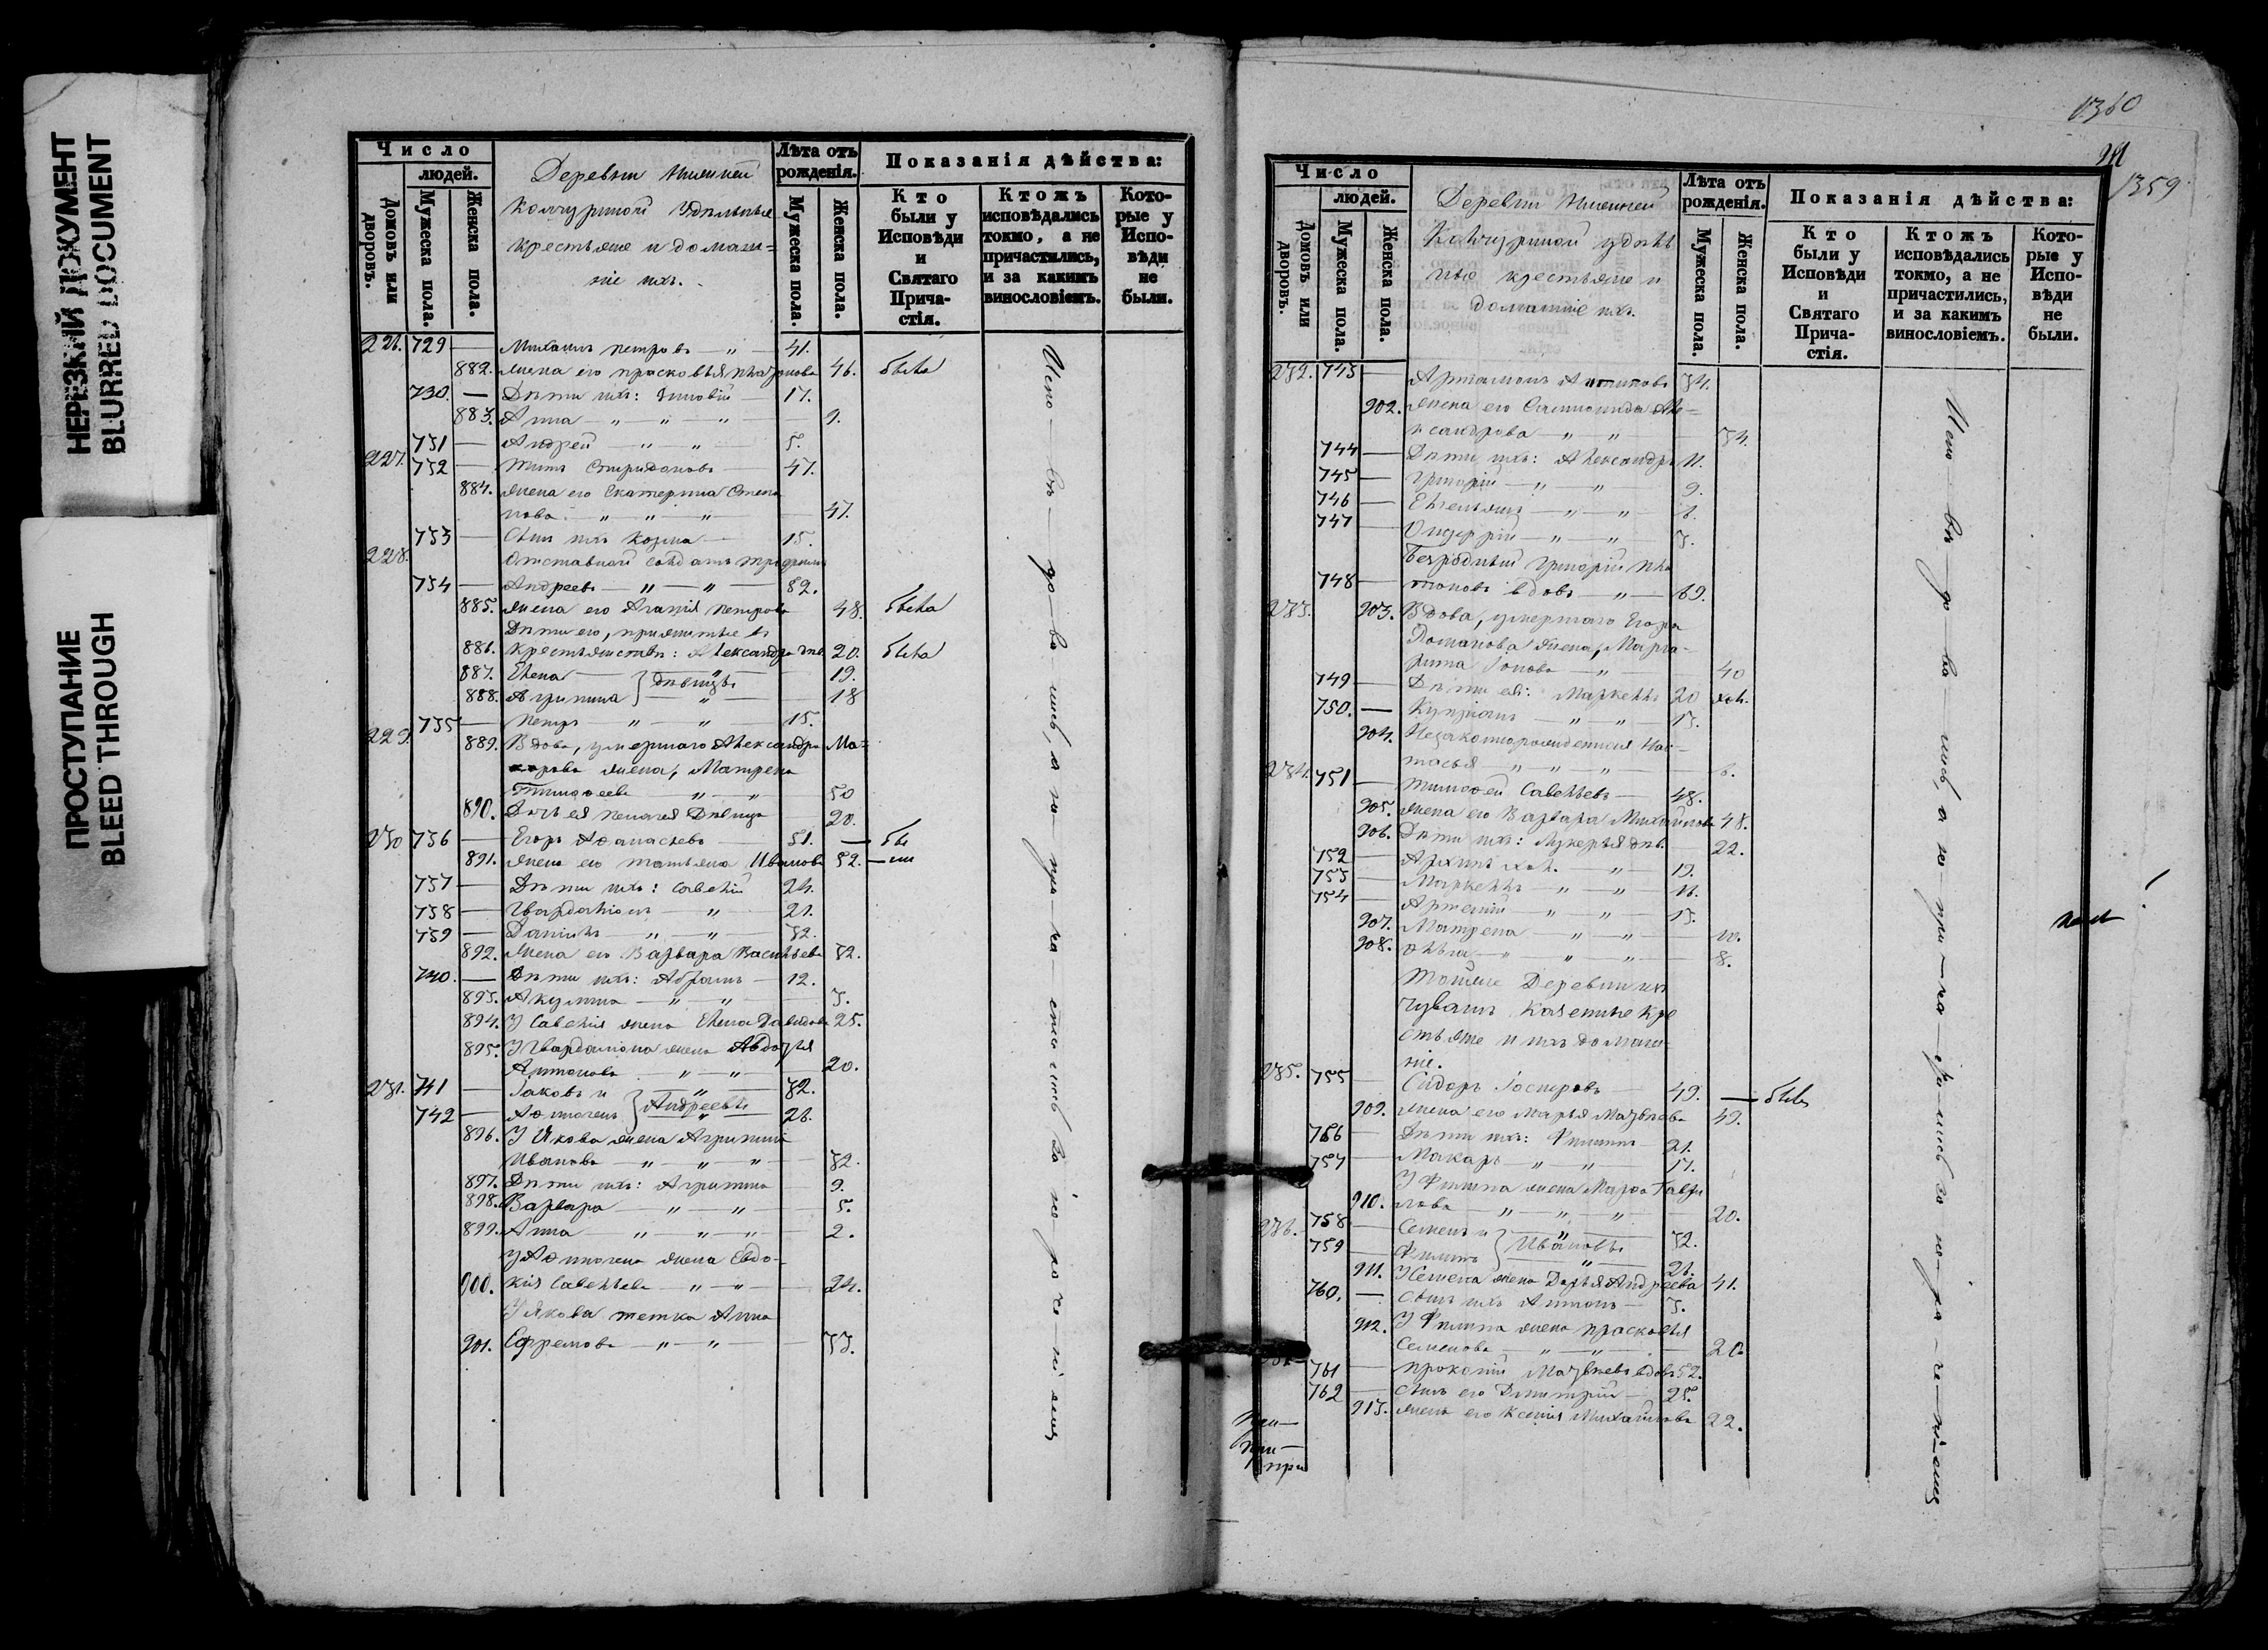 НЕРЕЗКИЙ ДОКУМЕНТ
BLURRED DOCUMENT
ПРОСТУПАНИЕ
BLEED THROUGH
Число
людей.
Домовъ или дворовъ.
Мужеска пола.
Женска пола.
Деревни Нижней
Колчуриной Удѣльные
крестьяне и домаш=
ніе ихъ.
Лѣта отъ рожденія.
Мужеска пола.
Женска пола.
Показанія дѣйства:
Кто были у Исповѣди и Святаго Прича-стія.
Ктожъ исповѣдались токмо, а не причастились, и за какимъ винословіемъ.
Кото-рые у Испо-вѣди не были.
226. 729 — Михаилъ Петровъ — 41.
882. Жена его Прасковья Платонова 46. была
730. — Дѣти ихъ: Зиновій — 17.
883. Анна — 9.
731 — Андрей — 5.
227. 732 — Титъ Спиридоновъ — 47.
884. Жена его Екатерина Степа
нова — 47.
733 — Сынъ ихъ Козма — 15.
228. Отставной солдатъ Трофимъ
734 — Андреевъ — 82.
885. Жена его Агапія Петрова 48. была
Дѣти его, прижитые въ
886. крестьянствѣ: Александра 20. была
887. Елена — 19.
888. Агрипина } дѣвицы — 18
735 — Петръ — 15.
229. 889. Вдова, умершаго Александра Ма=
карова жена, Матрена
Тимофеева — 50
890. Дочь ея Пелагея Дѣвица 20.
230 736 — Егоръ Афанасьевъ — 51. — бы
891. Жена его Татьяна Иванова 52. — ли
737 — Дѣти ихъ: Савелій 24.
738 — Вардаліонъ — 21.
739 — Даніилъ — 32.
892. Жена его Варвара Васильева 32.
740. — Дѣти ихъ: Абрамъ — 12.
893. Акулина — 3.
894. У Савелія жена Елена Давидова 25.
895. У Вардаліона жена Авдотья
Антонова — 20.
231. 741 — Іаковъ и — 32.
742 — Афиногенъ } Андреевы — 26.
896. У Якова жена Агрипина
Иванова — 32.
897. Дѣти ихъ: Агрипина 9.
898. Варвара — 5.
899. Анна — 2.
У Афиногена жена Евдо-
900. кія Савельева — 24.
У Якова тетка Анна
901. Ефремова — 53.
1360
1359
Число
людей.
Домовъ или дворовъ.
Мужеска пола.
Женска пола.
Деревни Нижней
Колчуриной удѣль
ные крестьяне и
домашніе ихъ.
Лѣта отъ рожденія.
Мужеска пола.
Женска пола.
Показанія дѣйства:
Кто были у Исповѣди и Святаго Прича-стія.
Ктожъ исповѣдались токмо, а не причастились, и за какимъ винословіемъ.
Кото-рые у Испо-вѣди не были.
232. 743 — Артамонъ Антиповъ 34.
902. Жена его Соломонида Але=
ксандрова — 34.
744 — Дѣти ихъ: Александръ 11.
745 — Григорій — 9.
746 — Емельянъ — 6.
747 — 3.
Безродный Григорій Пла
748 — тоновъ вдовъ — 69.
233. 903. Вдова, умершаго Егора
Романова жена, Марга-
рита Іонова — 40
749 — Дѣти ея: Маркеллъ 20 хол.
750. — Купріянъ — 13.
904. Незаконнорожденная Нас-
тасья — 6.
234. 751 — Тимофей Савельевъ — 48.
905. Жена его Варвара Михайлова 48.
906. Дѣти ихъ: Лукерья дѣв. 22.
752 — Архипъ хол. — 19.
753 — Маркеллъ — 16.
754 — Артемій — 13.
907. Матрена — 10.
908. — 8.
Тойже Деревни изъ
чувашъ казенные кре
стьяне и ихъ домаш-
ніе.
235. 755 — Сидоръ — 49. — были
909. Жена его Марья Матвѣева 49.
756 — Дѣти ихъ: Филиппъ — 21.
757 — Макаръ — 17.
У Филиппа жена Марфа Гаври
910. лова — 20.
236. 758 — Семенъ и — 32.
759 — Филиппъ } Ивановы — 26.
911. У Семена жена Дарья Андреева 41.
760. — Сынъ ихъ Антонъ — 3.
912. У Филиппа жена Прасковья
Семенова — 26.
761 — Прокопій Матвѣевъ вдовъ 52.
762 — Сынъ его Димитрій — 25.
913. Жена его Ксенія Михайлова 22.